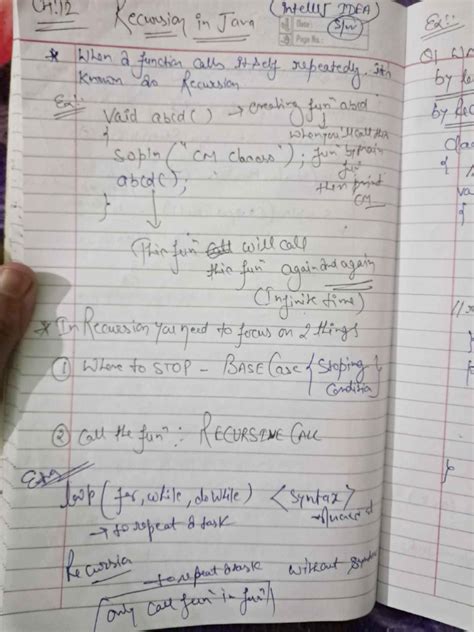 CH:12 Recursion in Java (Intellij IDEA)
Date:
Page No.:
S/w
* When a function calls itself repeatedly, it's
known as Recursion
Ex:- void abcd() → creating funⁿ abcd
{ when you'll call this
sopln("CM Classes"); funⁿ by main
abcd(); funⁿ
then print
} CM
This funⁿ will call
this funⁿ again and again
(Infinite time)
* In Recursion you need to focus on 2 things
① Where to STOP - BASE Case { Stoping }
Condition
② Call the funⁿ: RECURSIVE CALL
loop (for, while, do while) <Syntax>
→ to repeat a task
Recursion → to repeat a task without
only call funⁿ in funⁿ
Ex:-
Q1
by
by Rec
Clas
{
va
{
}